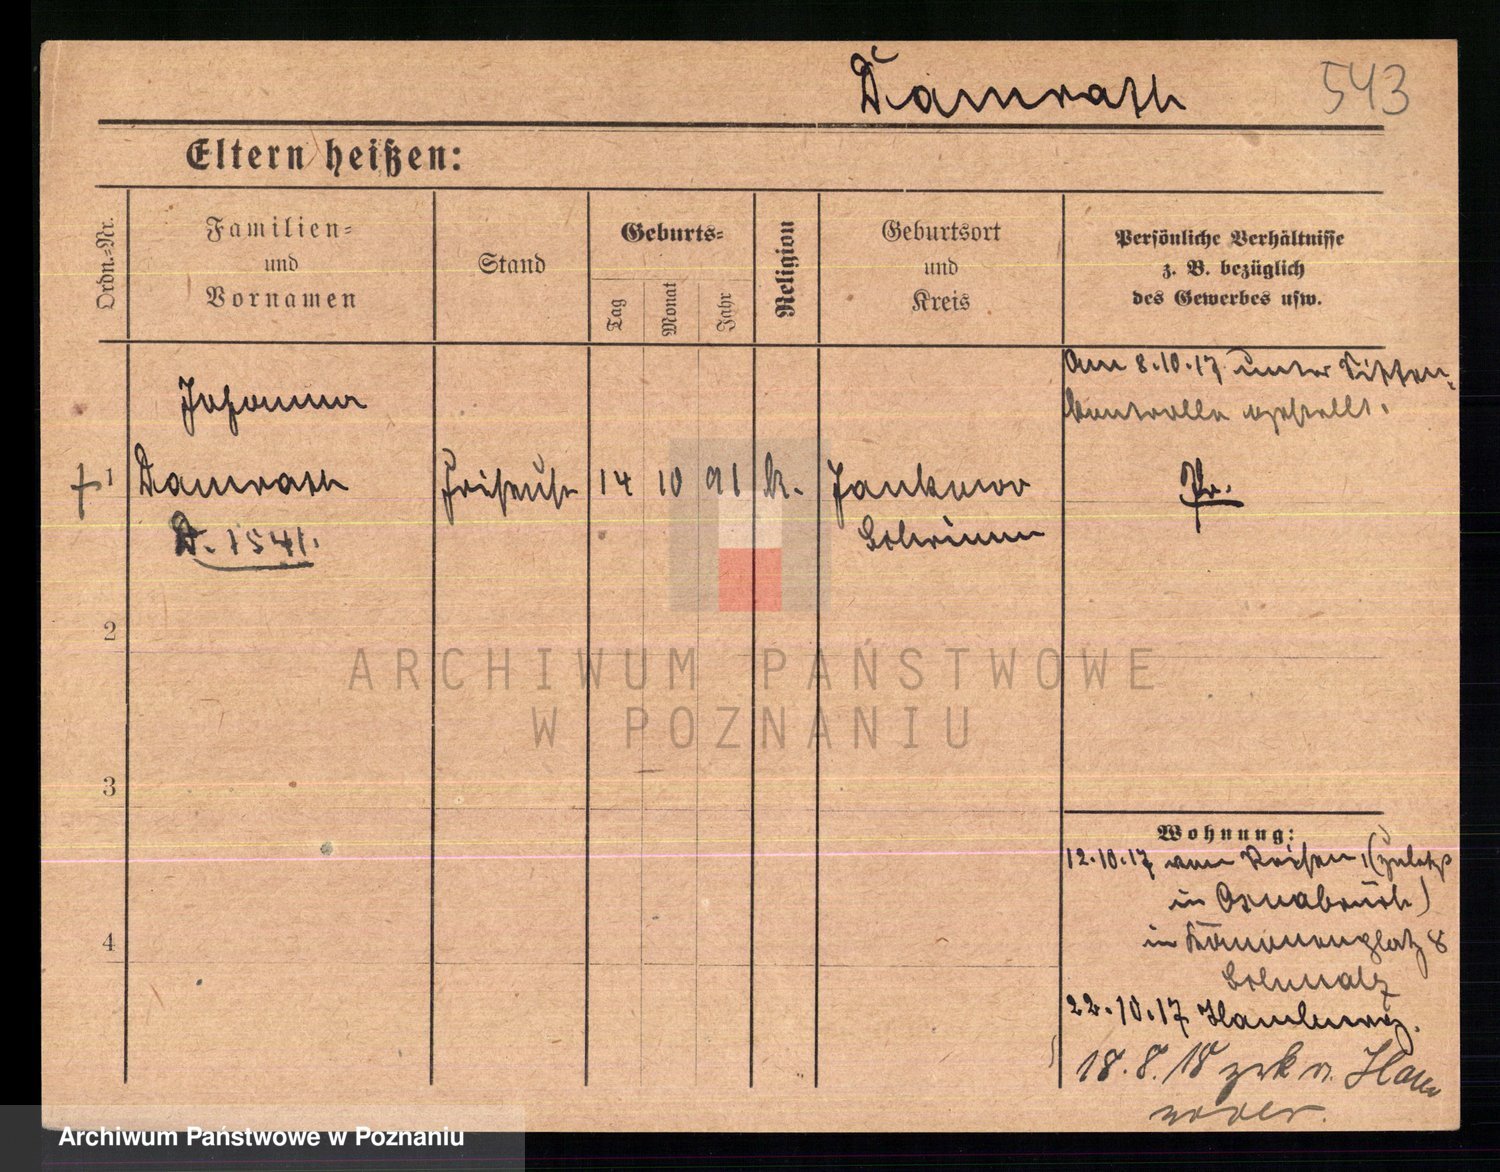 Damrath 543
Eltern heißen:
Ordn.-Nr.
Familien-
und
Vornamen
Stand
Geburts-
Tag
Monat
Jahr
Religion
Geburtsort
und
Kreis
Persönliche Verhältnisse
z. B. bezüglich
des Gewerbes usw.
Am 8.10.17 unter Sitten-
kontrolle gestellt.
Johanna
1 Damrath Friseuse 14 10 91 k. Jankowo
D. 1541. Schrimm
Pr.
2
ARCHIWUM PAŃSTWOWE
W POZNANIU
3
Wohnung:
12.10.17 von Reisen, (zuletzt
in Osnabrück)
in 8
Schmalz
22.10.17 Hamburg.
4
18.8.18 zrk v. Han
nover.
Archiwum Państwowe w Poznaniu